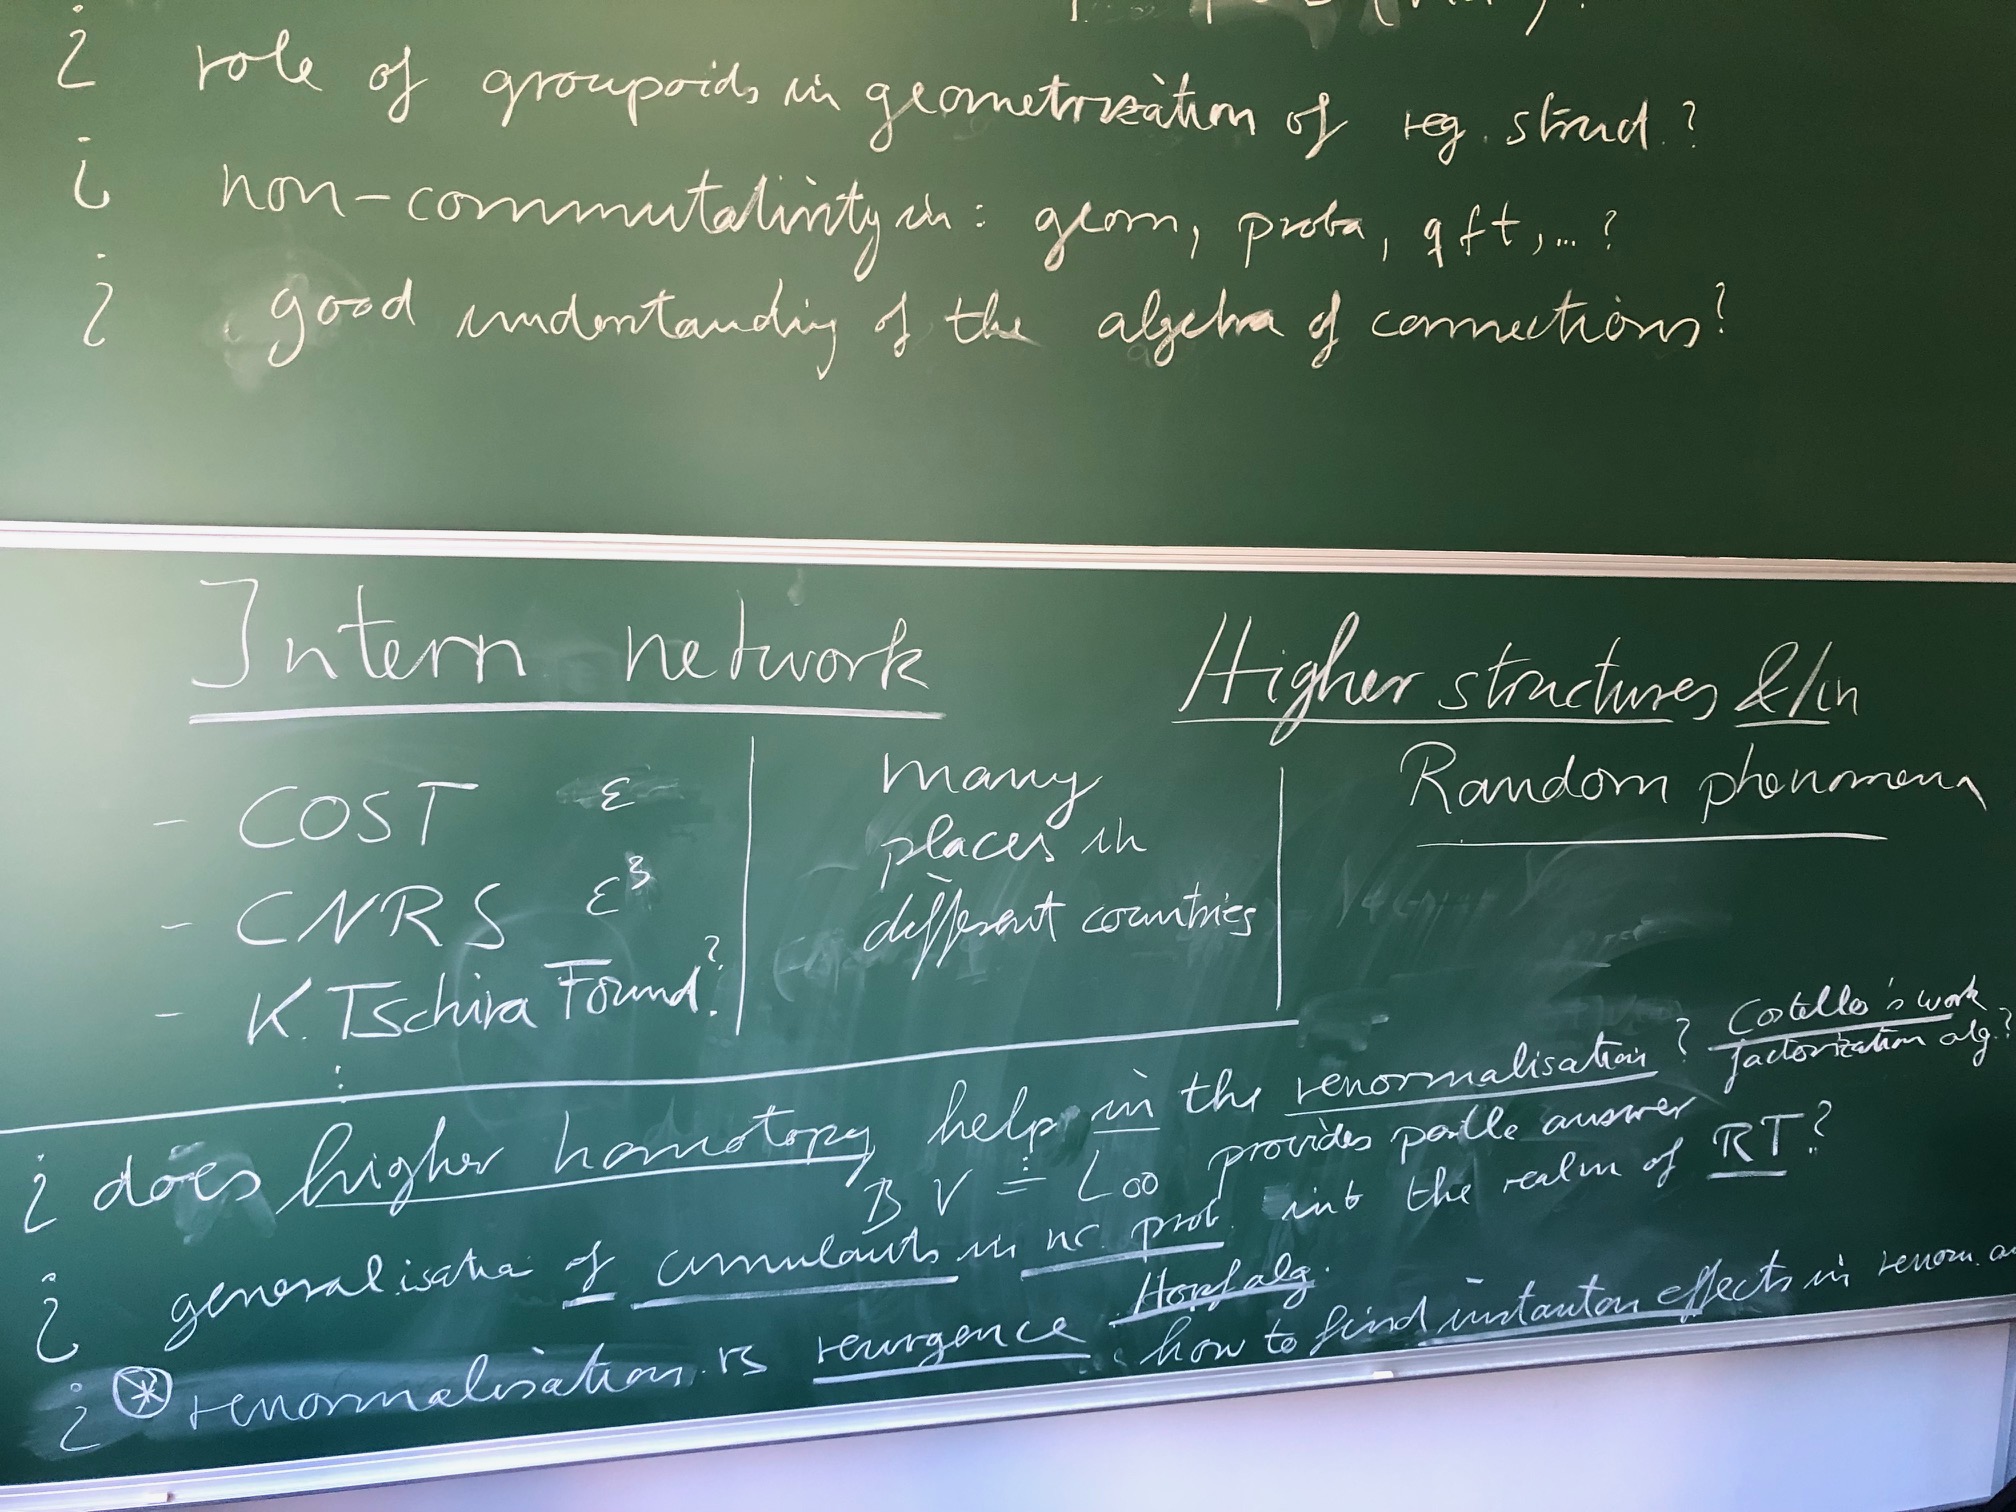 ¿ role of groupoids in geometrization of reg. struct.?
¿ non-commutativity in: geom, proba, qft,...?
¿ good understanding of the algebra of connections?
Intern network
- COST ε
- CNRS ε³
- K. Tschira Found?
⋮
many
places in
different countries
Higher structures &/in
Random phenomena
¿ does higher homotopy help in the renormalisation? Costello's work
factorization alg?
BV ≐ L∞ provides possible answer
¿ generalisation of cumulants in nc. prob. into the realm of RT?
Hopf alg.
¿ ⊛ renormalisation is resurgence: how to find instanton effects in renorm.